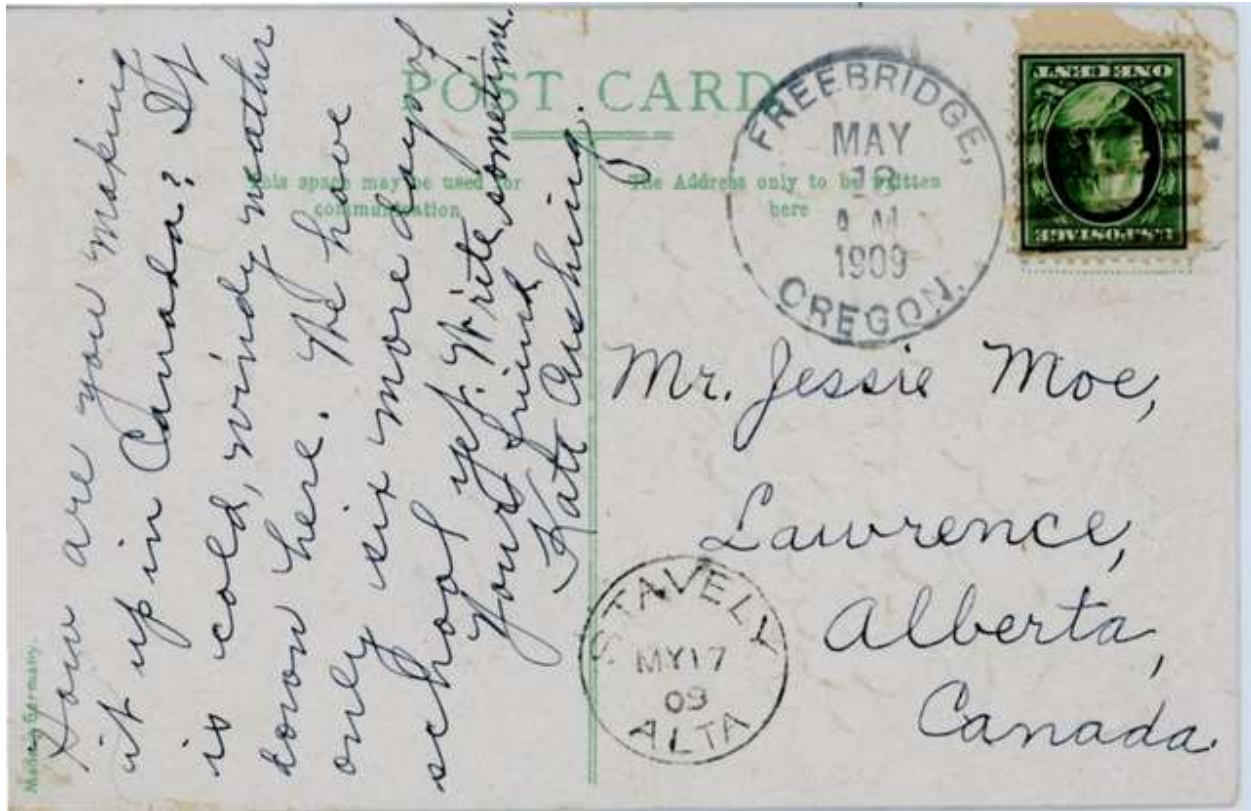 POST CARD
This space may be used for
communication
The Address only to be written
here
FREEBRIDGE,
MAY
A M
1909
OREGON.
U.S. POSTAGE
ONE CENT
How are you making
it up in Canada? It
is cold, windy weather
down here. We have
only six more days of
school yet. Write sometime.
Your friend
Kate Cushing.
Mr. Jessie Moe,
Lawrence,
Alberta,
Canada.
STAVELY
MY 17
09
ALTA
Made in Germany.